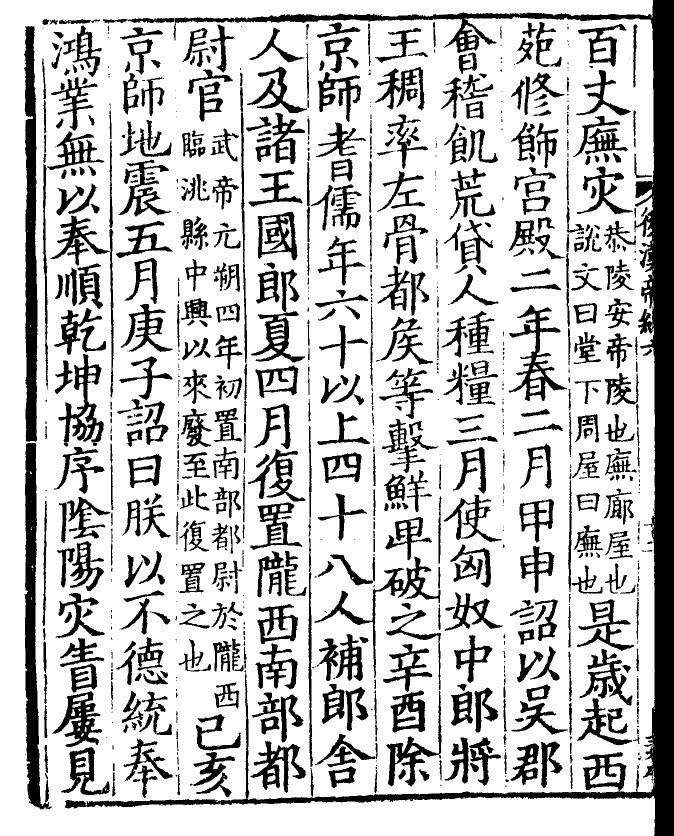 百丈廡灾恭陵安帝陵也廡廊屋也說文曰堂下周屋曰廡也是歲起西
苑修飾宮殿二年春二月甲申詔以吳郡
會稽飢荒貸人種糧三月使匈奴中郎將
王稠率左骨都侯等擊鮮卑破之辛酉除
京師耆儒年六十以上四十八人補郎舍
人及諸王國郎夏四月復置隴西南部都
尉官武帝元朔四年初置南部都尉於隴西臨洮縣中興以來廢至此復置之也己亥
京師地震五月庚子詔曰朕以不德統奉
鴻業無以奉順乾坤協序陰陽灾眚屢見